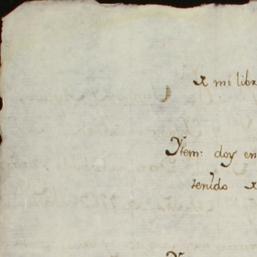 a mi libr
Ytem: doy en
tenido a
Y